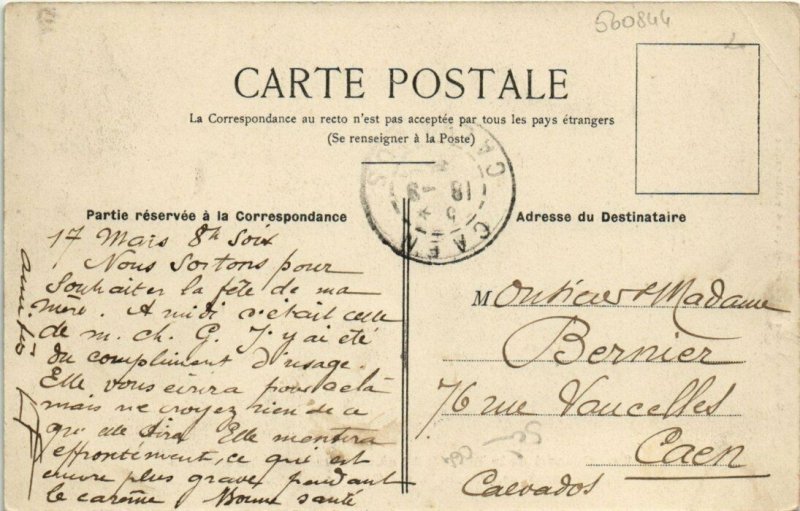 560844
CARTE POSTALE
La Correspondance au recto n'est pas acceptée par tous les pays étrangers
(Se renseigner à la Poste)
CAEN
18 - 3
Partie réservée à la Correspondance
17 Mars 8h Soir
Nous Sortons pour
Souhaiter la fête de ma
mère. A midi c'était celle
de m. ch. G. J'y ai été
du compliment d'usage.
Elle vous écrira pour cela
mais ne croyez rien de ce
qu'elle dira Elle mentira
effrontément, ce qui est
encore plus grave pendant
le carême Bonne santé
amitiés
Adresse du Destinataire
Monsieur & Madame
Bernier
76 rue Vaucelles
Caen
Calvados